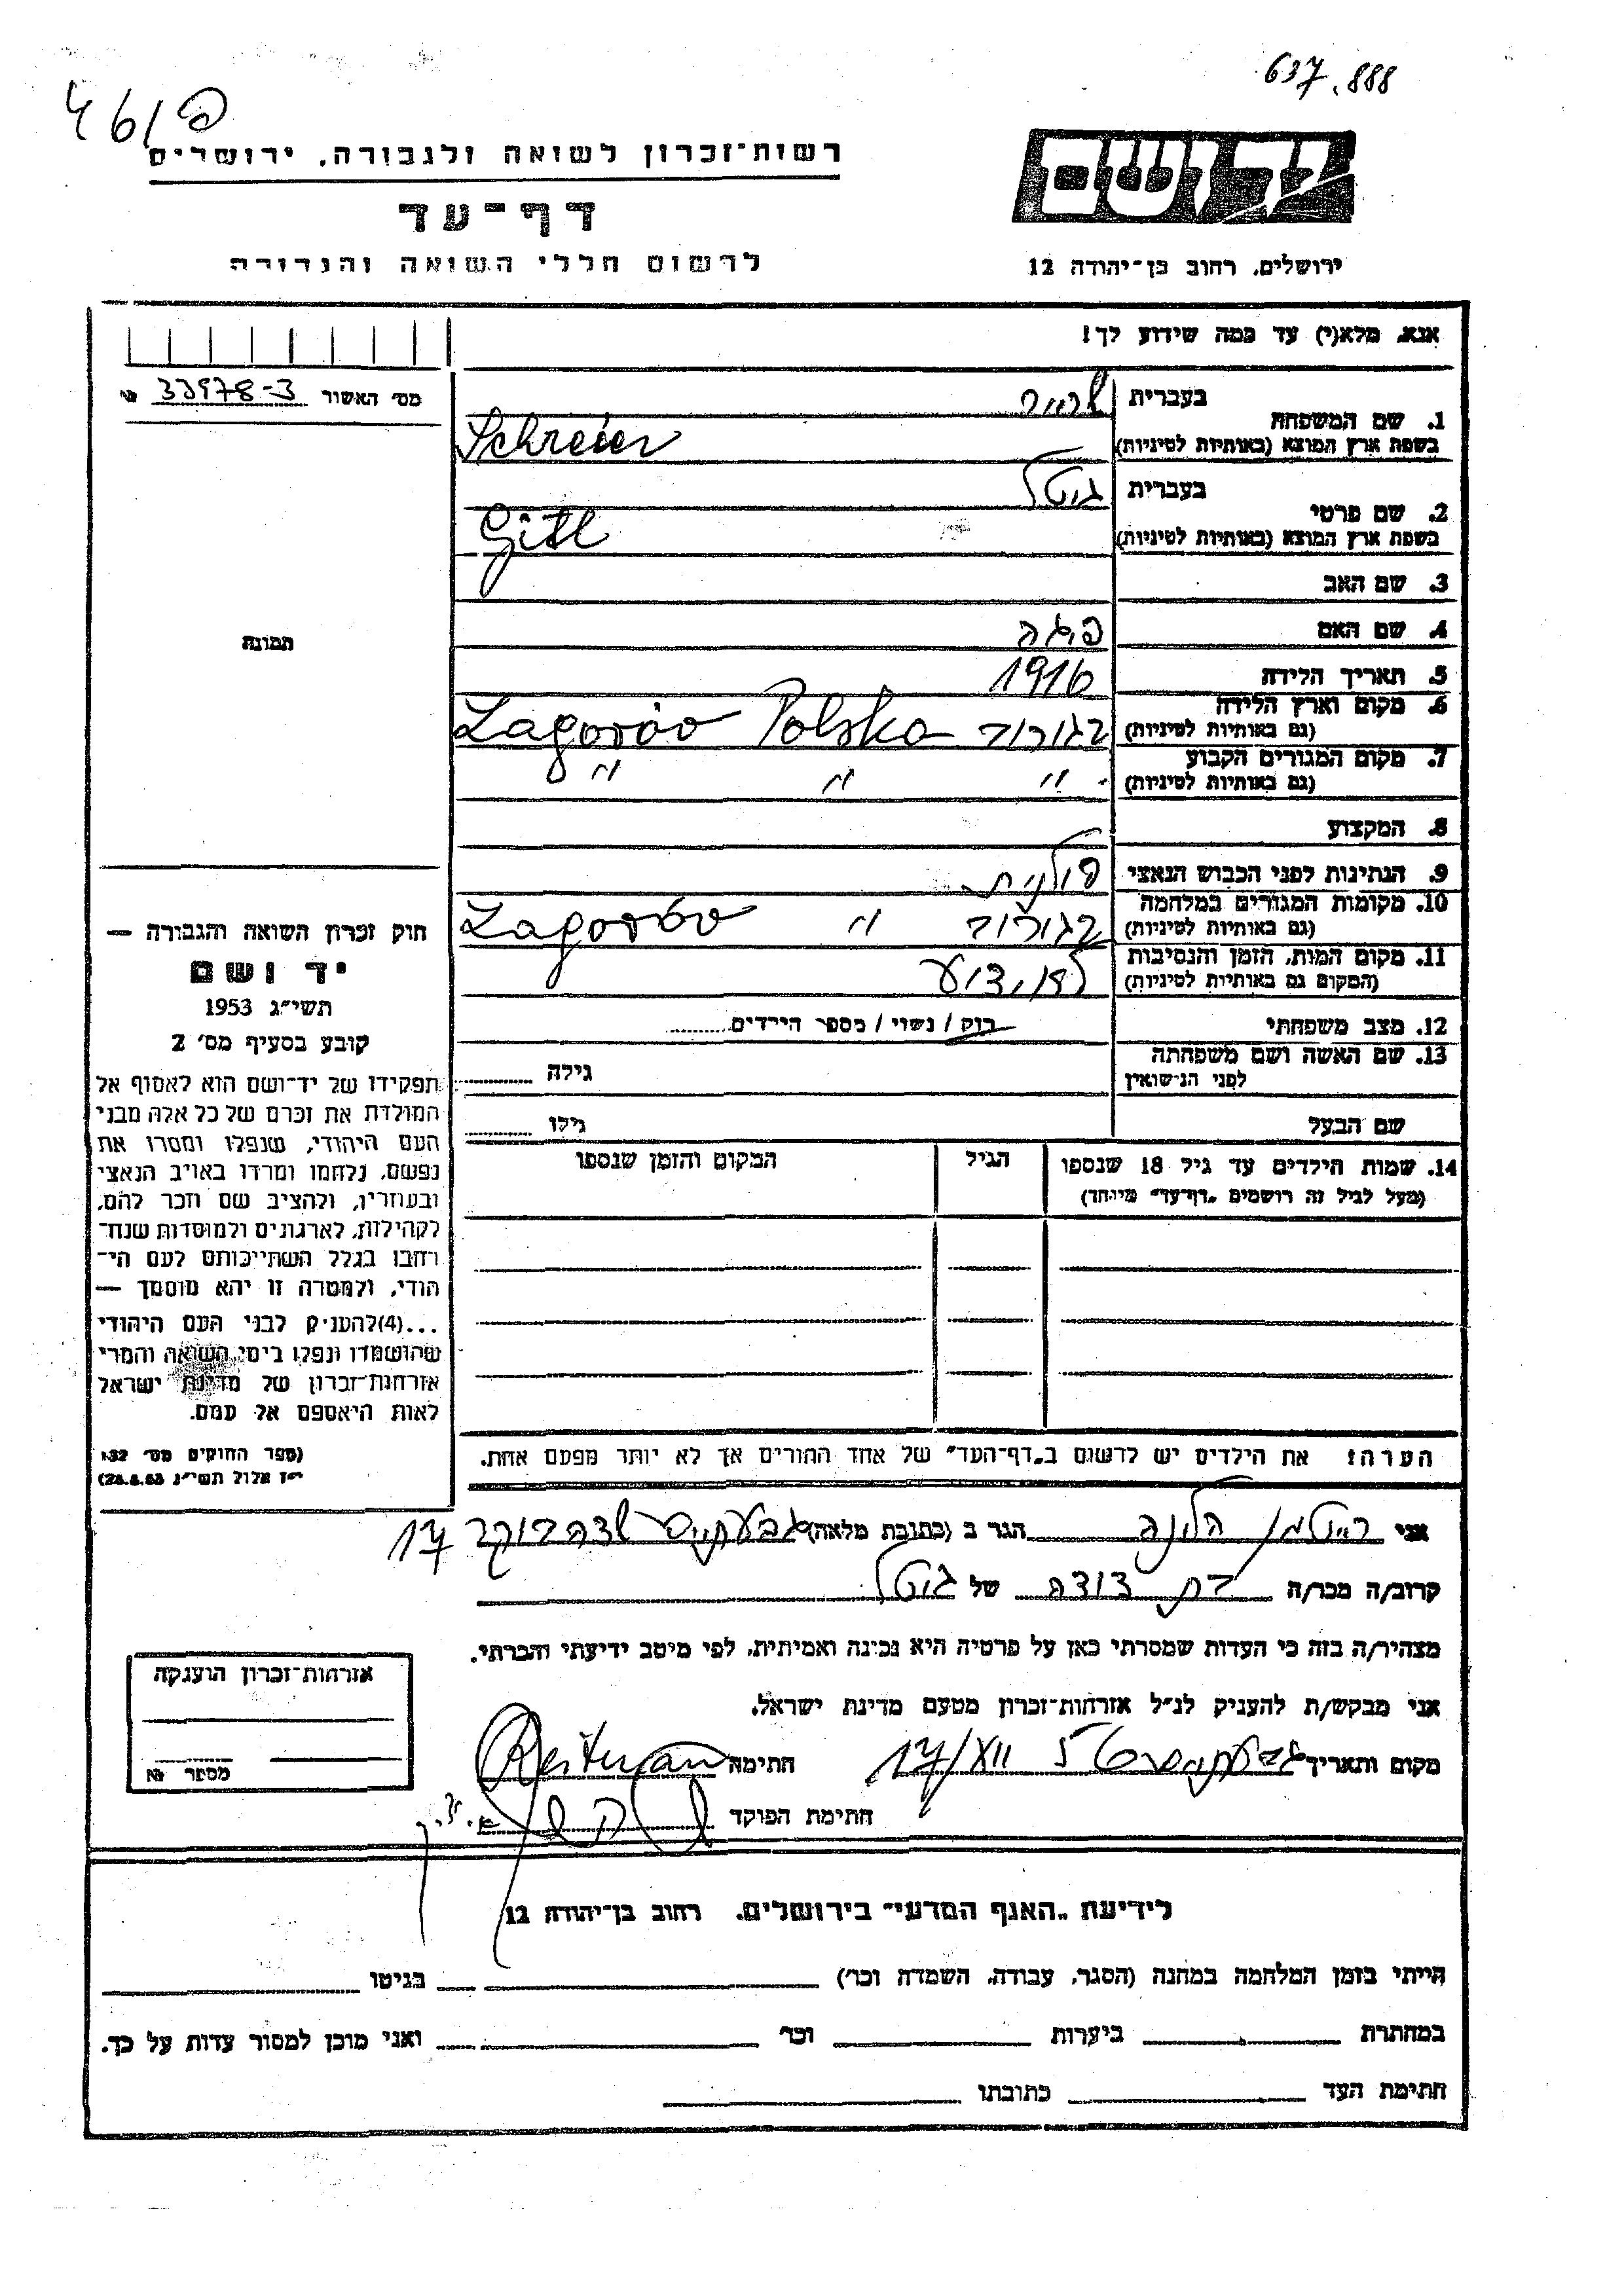 637.888
461פ
יד ושם
רשות־זכרון לשואה ולגבורה, ירושלים
דף־עד
ירושלים, רחוב בן־יהודה 12
לרשום חללי השואה והגבורה
אנא, מלא(י) עד כמה שידוע לך!
מס׳ האשור 33978-3 №
1. שם המשפחה
בעברית שרייר
בשפת ארץ המוצא (באותיות לטיניות) Schreier
2. שם פרטי
בעברית גיטל
בשפת ארץ המוצא (באותיות לטיניות) Gitl
3. שם האב
4. שם האם פיגה
5. תאריך הלידה 1916
6. מקום וארץ הלידה
(גם באותיות לטיניות) זגורוב Zagorów Polska
7. מקום המגורים הקבוע
(גם באותיות לטיניות) " " "
8. המקצוע
9. הנתינות לפני הכבוש הנאצי פולנית
10. מקומות המגורים במלחמה
(גם באותיות לטיניות) זגורוב " Zagorów
11. מקום המות, הזמן והנסיבות
(המקום גם באותיות לטיניות) לא ידוע
12. מצב משפחתי רוק / נשוי / מספר הילדים
13. שם האשה ושם משפחתה
לפני הנישואין גילה
שם הבעל גילו
14. שמות הילדים עד גיל 18 שנספו
(מעל לגיל זה רושמים „דף־עד״ מיוחד)
הגיל
המקום והזמן שנספו
הערה: את הילדים יש לרשום ב„דף־העד״ של אחד ההורים אך לא יותר מפעם אחת.
תמונה
חוק זכרון השואה והגבורה —
יד ושם
תשי״ג 1953
קובע בסעיף מס׳ 2
תפקידו של יד־ושם הוא לאסוף אל
המולדת את זכרם של כל אלה מבני
העם היהודי, שנפלו ומסרו את
נפשם, נלחמו ומרדו באויב הנאצי
ובעוזריו, ולהציב שם וזכר להם,
לקהילות, לארגונים ולמוסדות שנח־
רחבו בגלל השתייכותם לעם הי־
הודי, ולמטרה זו יהא מוסמך —
...(4)להעניק לבני העם היהודי
שהושמדו ונפלו בימי השואה והמרי
אזרחות־זכרון של מדינת ישראל
לאות היאספם אל עמם.
(ספר החוקים מס׳ 132
י״ז אלול תשי״ג 28.8.53)
אני רייטמן הלינה הגר ב (כתובת מלאה) גבעתיים שדה בוקר 17
קרוב/ה מכר/ה בת דודה של גיטל
מצהיר/ה בזה כי העדות שמסרתי כאן על פרטיה היא נכונה ואמיתית, לפי מיטב ידיעתי והכרתי.
אני מבקש/ת להעניק לנ״ל אזרחות־זכרון מטעם מדינת ישראל.
מקום ותאריך 17/XII חתימה Reitman
חתימת הפוקד
אזרחות־זכרון הוענקה
מספר №
לידיעת „האגף המדעי״ בירושלים, רחוב בן־יהודה 12
הייתי בזמן המלחמה במחנה (הסגר, עבודה, השמדה וכו׳) בגיטו
במחתרת ביערות וכו׳ ואני מוכן למסור עדות על כך.
חתימת העד כתובתו